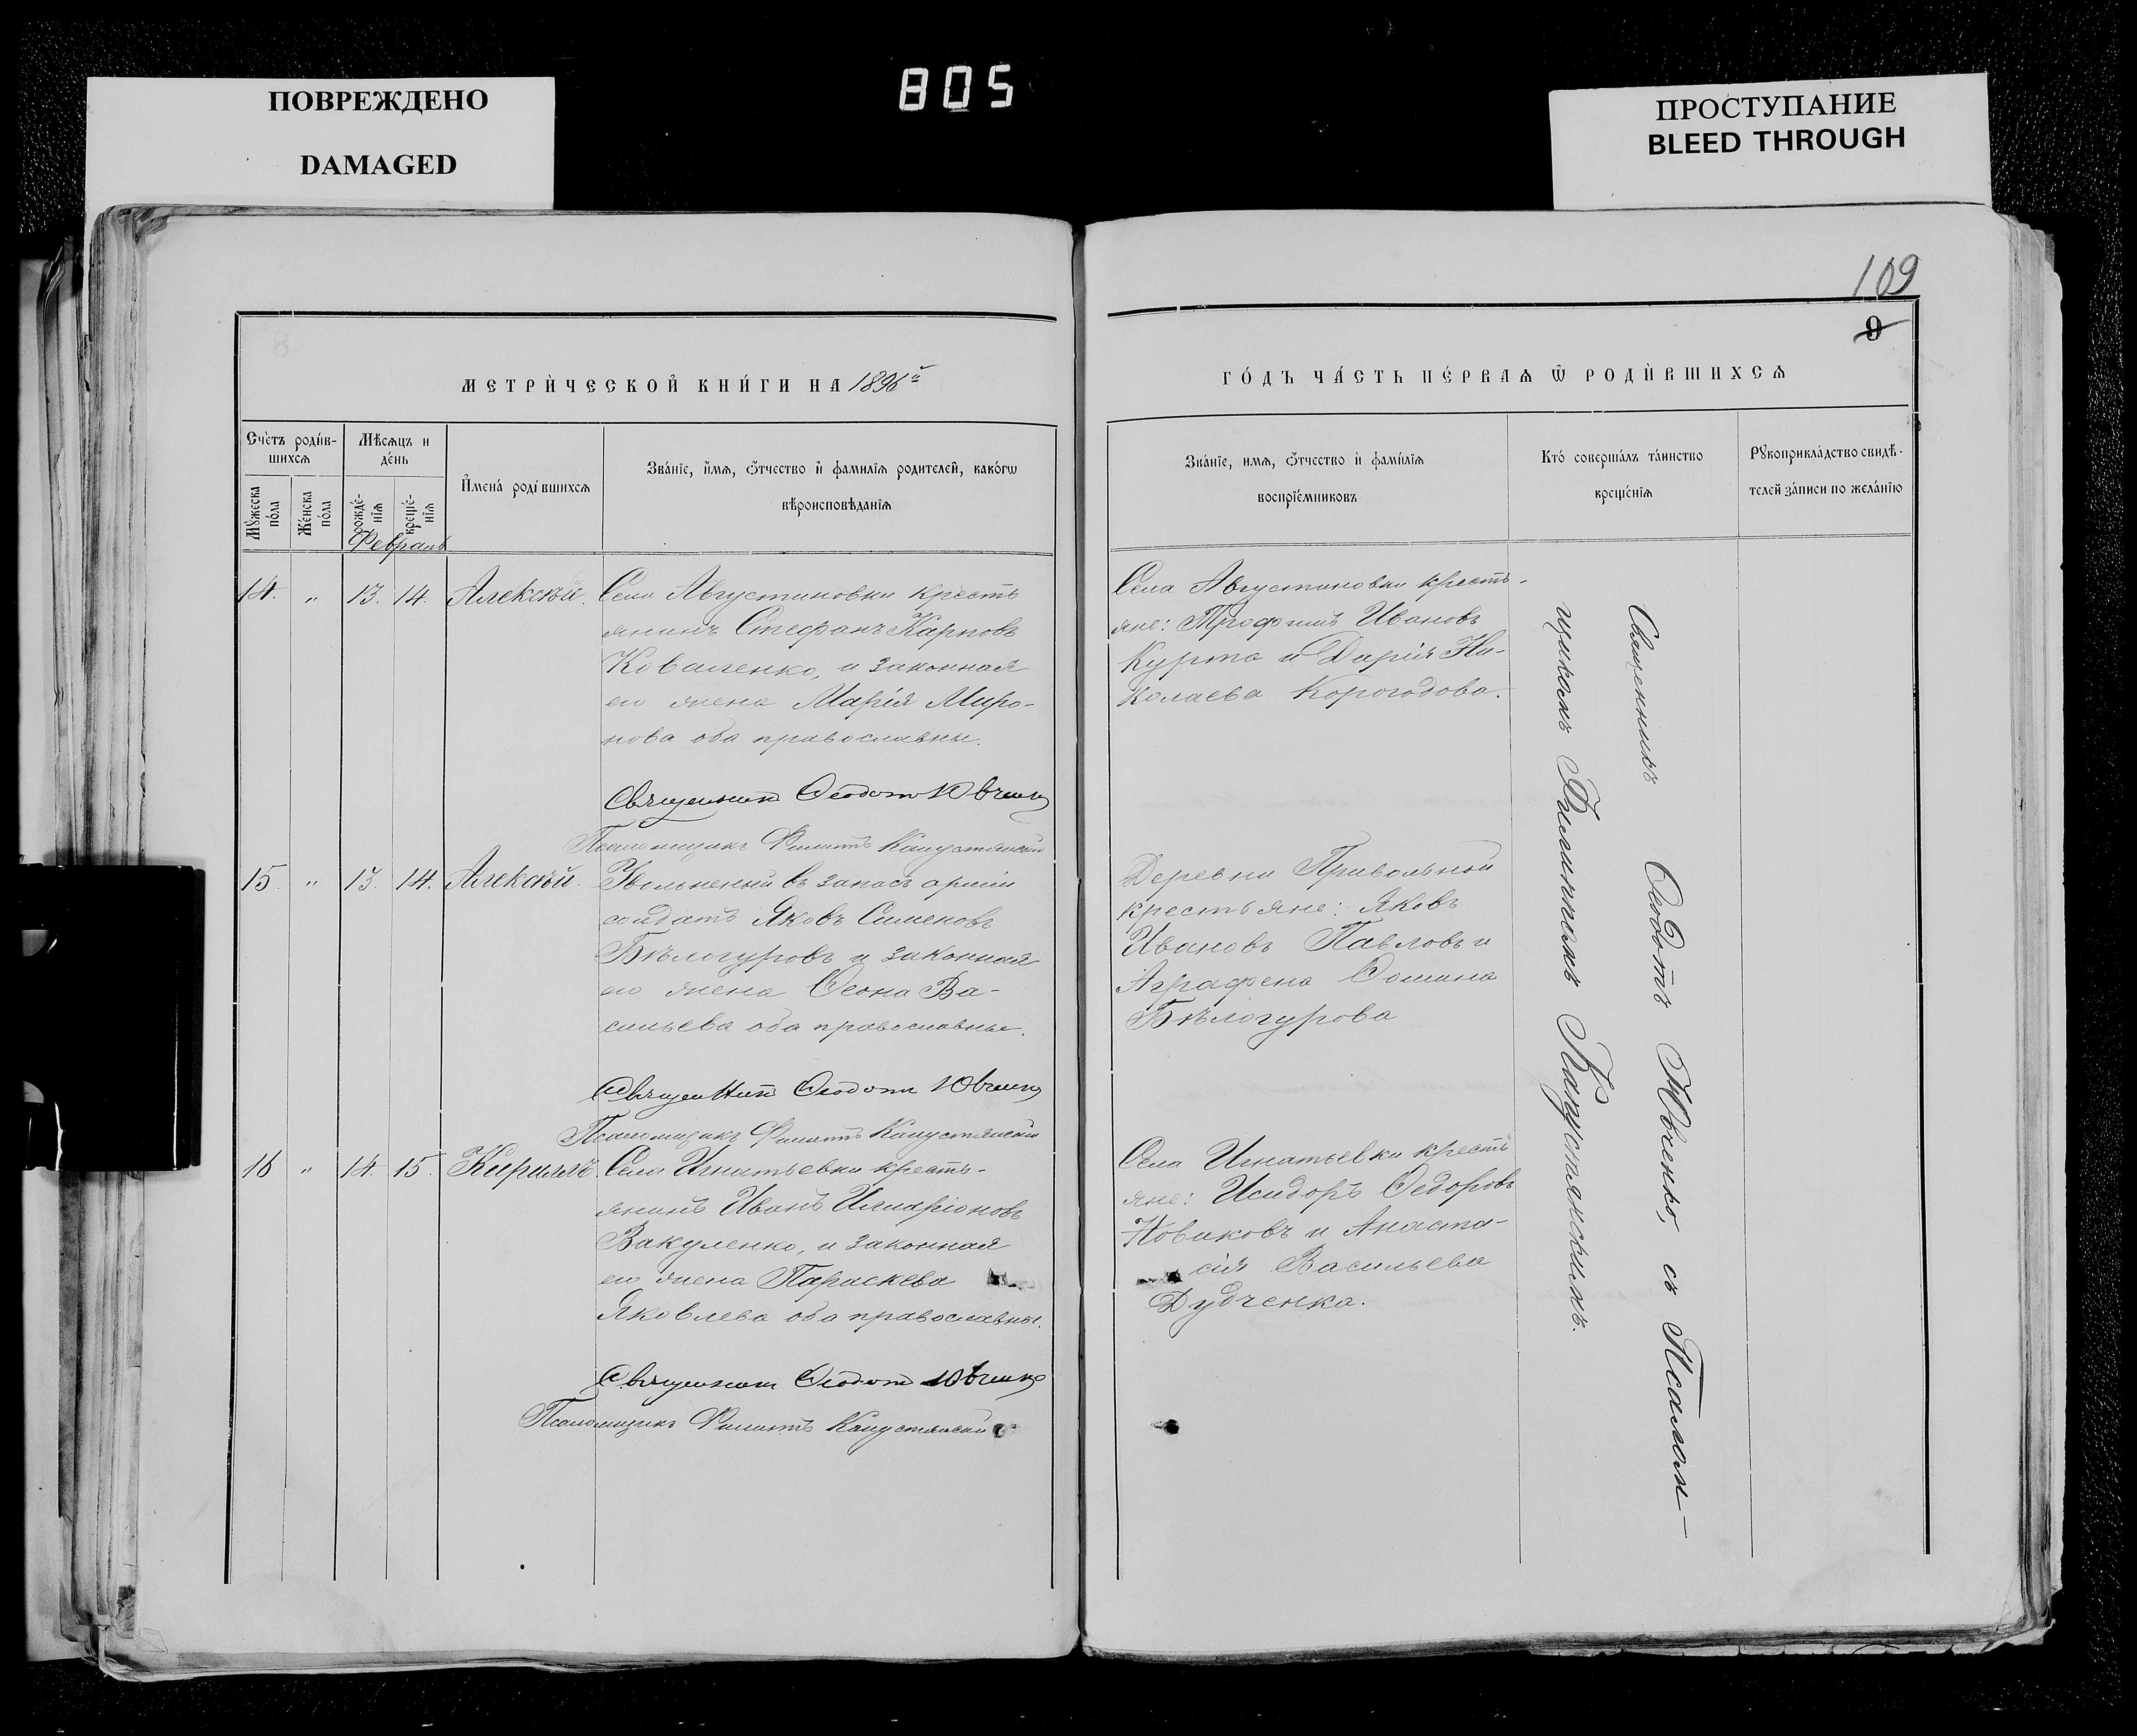 805
ПОВРЕЖДЕНО
DAMAGED
ПРОСТУПАНИЕ
BLEED THROUGH
109
9
МЕТРИ́ЧЕСКОЙ КНИ́ГИ НА 1896й
ГО́ДЪ ЧА́СТЬ ПЕ́РВАѦ Ѿ РОДИ́ВШИХСѦ
Сче́тъ роди́в-
шихсѧ
Мꙋ́жеска
по́ла
Же́нска
по́ла
Мѣ́сѧцъ и
де́нь
рожде́-
нїѧ
креще́-
нїѧ
Имена́ роди́вшихсѧ
Зва́нїе, и́мѧ, ѻ́тчество и҆ фами́лїѧ роди́телей, како́гѡ
вѣроисповѣ́данїѧ
Зва́нїе, имѧ, ѻ́тчество и҆ фами́лїѧ
воспрїе́мниковъ
Кто́ соверша́лъ та́инство
креще́нїѧ
Рꙋкоприкла́дство свидѣ́-
телей за́писи по жела́нїю
Февраль
14. „ 13. 14. Алексѣй.
Села Августиновки кресть
янинъ Стефанъ Карповъ
Коваленко, и законная
его жена Марія Миро-
нова оба православные.
Священник Феодот Ювченко
Псаломщикъ Филиппъ Капустянский
Села Августиновки кресть-
яне: Трофимъ Ивановъ
Курта и Дарія Ни-
колаева Корогодова.
15. „ 13. 14. Алексѣй.
Уволненный въ запасъ арміи
солдатъ Яковъ Сименовъ
Бѣлогуровъ и законная
его жена Ѳеона Ва-
сильева оба православные.
Священник Феодот Ювченко
Псаломщикъ Филиппъ Капустянский
Деревни Привольной
крестьяне: Яковъ
Ивановъ Павловъ и
Аграфена Фомина
Бѣлогурова
16 „ 14. 15. Кириллъ.
Села Игнатьевки кресть-
янинъ Иванъ Иларіоновъ
Вакуленко, и законная
его жена Параскева
Яковлева оба православные.
Священник Феодот Ювченко
Псаломщикъ Филиппъ Капустянский
Села Игнатьевки кресть
яне: Исидоръ Ѳедоровъ
Новиковъ и Анаста-
сія Васильева
Дудченка.
Священникъ Ѳеодотъ Ювченко, съ Псалом-
щикомъ Филиппомъ Капустянскимъ.